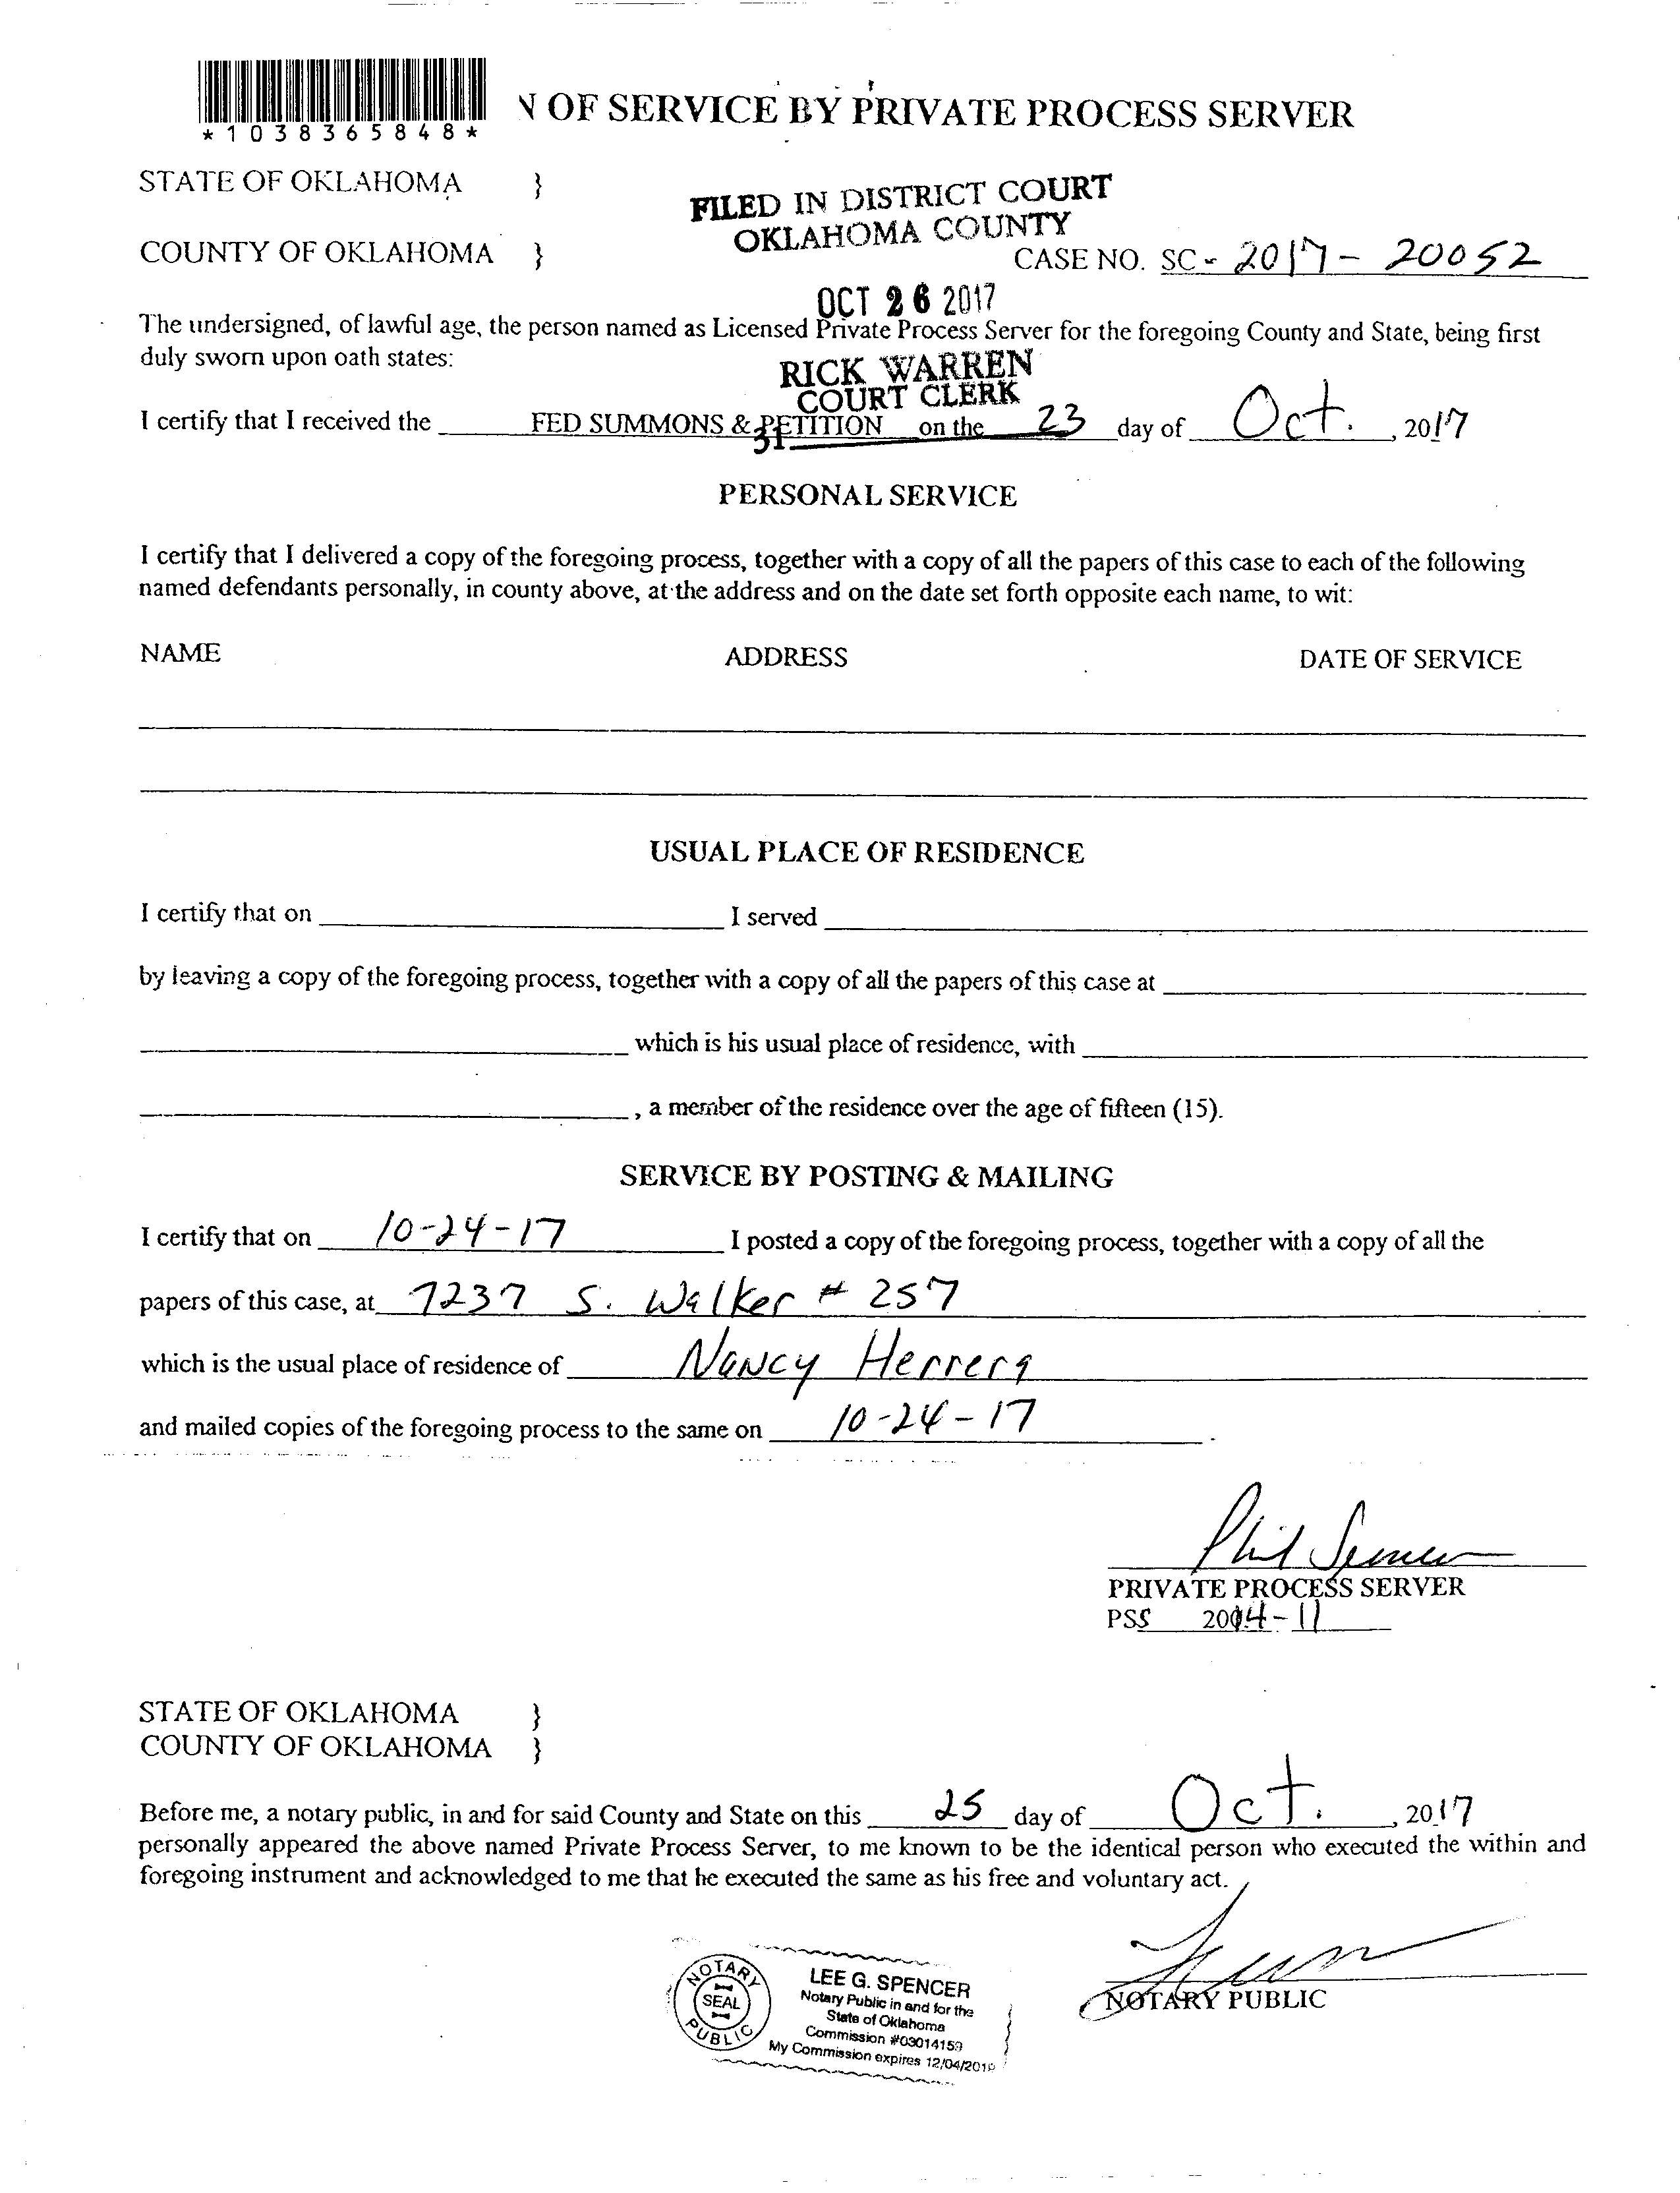 *1038365848*
N OF SERVICE BY PRIVATE PROCESS SERVER
STATE OF OKLAHOMA }
FILED IN DISTRICT COURT
OKLAHOMA COUNTY
COUNTY OF OKLAHOMA }
CASE NO. SC - 2017 - 20052
OCT 26 2017
The undersigned, of lawful age, the person named as Licensed Private Process Server for the foregoing County and State, being first
duly sworn upon oath states:
RICK WARREN
COURT CLERK
I certify that I received the FED SUMMONS & PETITION on the 23 day of Oct. , 2017
31
PERSONAL SERVICE
I certify that I delivered a copy of the foregoing process, together with a copy of all the papers of this case to each of the following
named defendants personally, in county above, at the address and on the date set forth opposite each name, to wit:
NAME ADDRESS DATE OF SERVICE
USUAL PLACE OF RESIDENCE
I certify that on I served
by leaving a copy of the foregoing process, together with a copy of all the papers of this case at
which is his usual place of residence, with
, a member of the residence over the age of fifteen (15).
SERVICE BY POSTING & MAILING
I certify that on 10-24-17 I posted a copy of the foregoing process, together with a copy of all the
papers of this case, at 7237 S. Walker # 257
which is the usual place of residence of Nancy Herrera
and mailed copies of the foregoing process to the same on 10-24-17 .
Phil Spencer
PRIVATE PROCESS SERVER
PSS 2014-11
STATE OF OKLAHOMA }
COUNTY OF OKLAHOMA }
Before me, a notary public, in and for said County and State on this 25 day of Oct. , 2017
personally appeared the above named Private Process Server, to me known to be the identical person who executed the within and
foregoing instrument and acknowledged to me that he executed the same as his free and voluntary act.
NOTARY PUBLIC
NOTARY
SEAL
PUBLIC
LEE G. SPENCER
Notary Public in and for the
State of Oklahoma
Commission #03014159
My Commission expires 12/04/2019